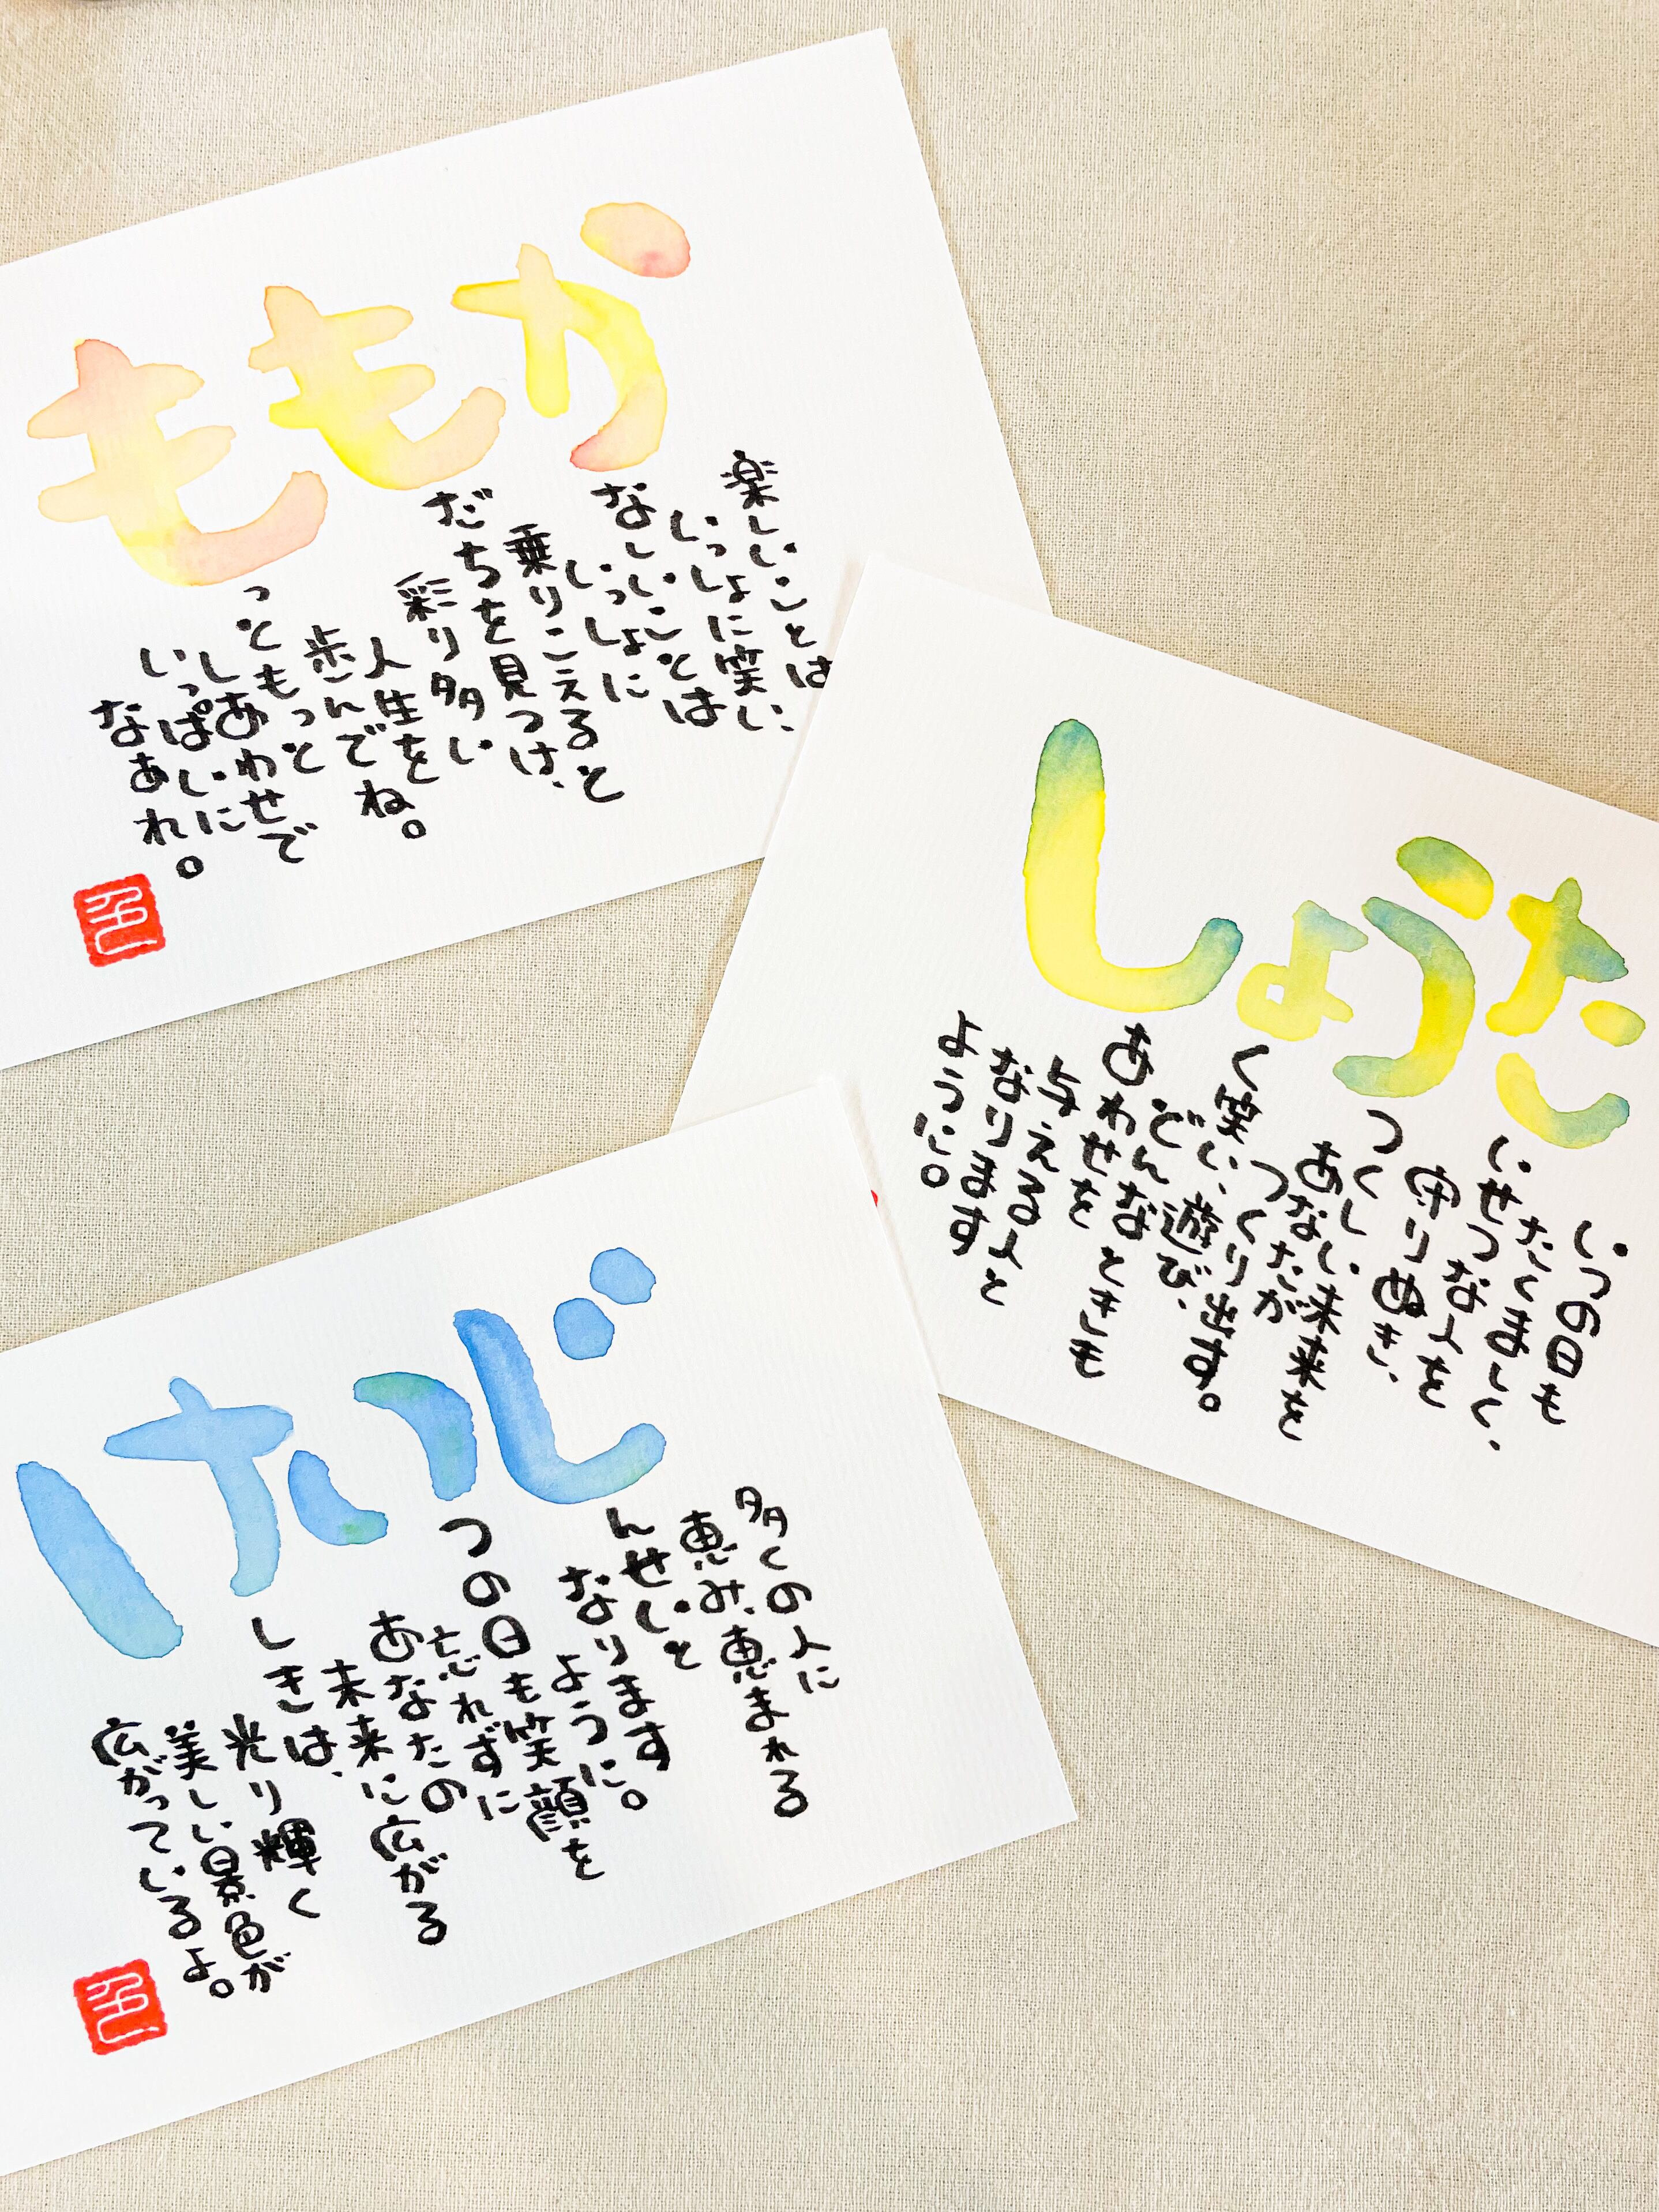 ももか
楽しいことは
いっしょに笑い、
なしいことは
いっしょに
乗りこえると
だちを見つけ、
彩り多い
人生を
歩んでね。
っともっと
しあわせで
いっぱいに
なあれ。
しょうた
いつの日も
たくましく、
いせつな人を
守りぬき、
つくしい未来を
あなたが
つくり出す。
く笑い、遊び、
どんなときも
あわせを
与える人と
なります
ように。
けいじ
多くの人に
恵み、恵まれる
んせいと
なります
ように。
つの日も笑顔を
忘れずに
あなたの
未来に広がる
しきは、
光り輝く
美しい景色が
広がっているよ。